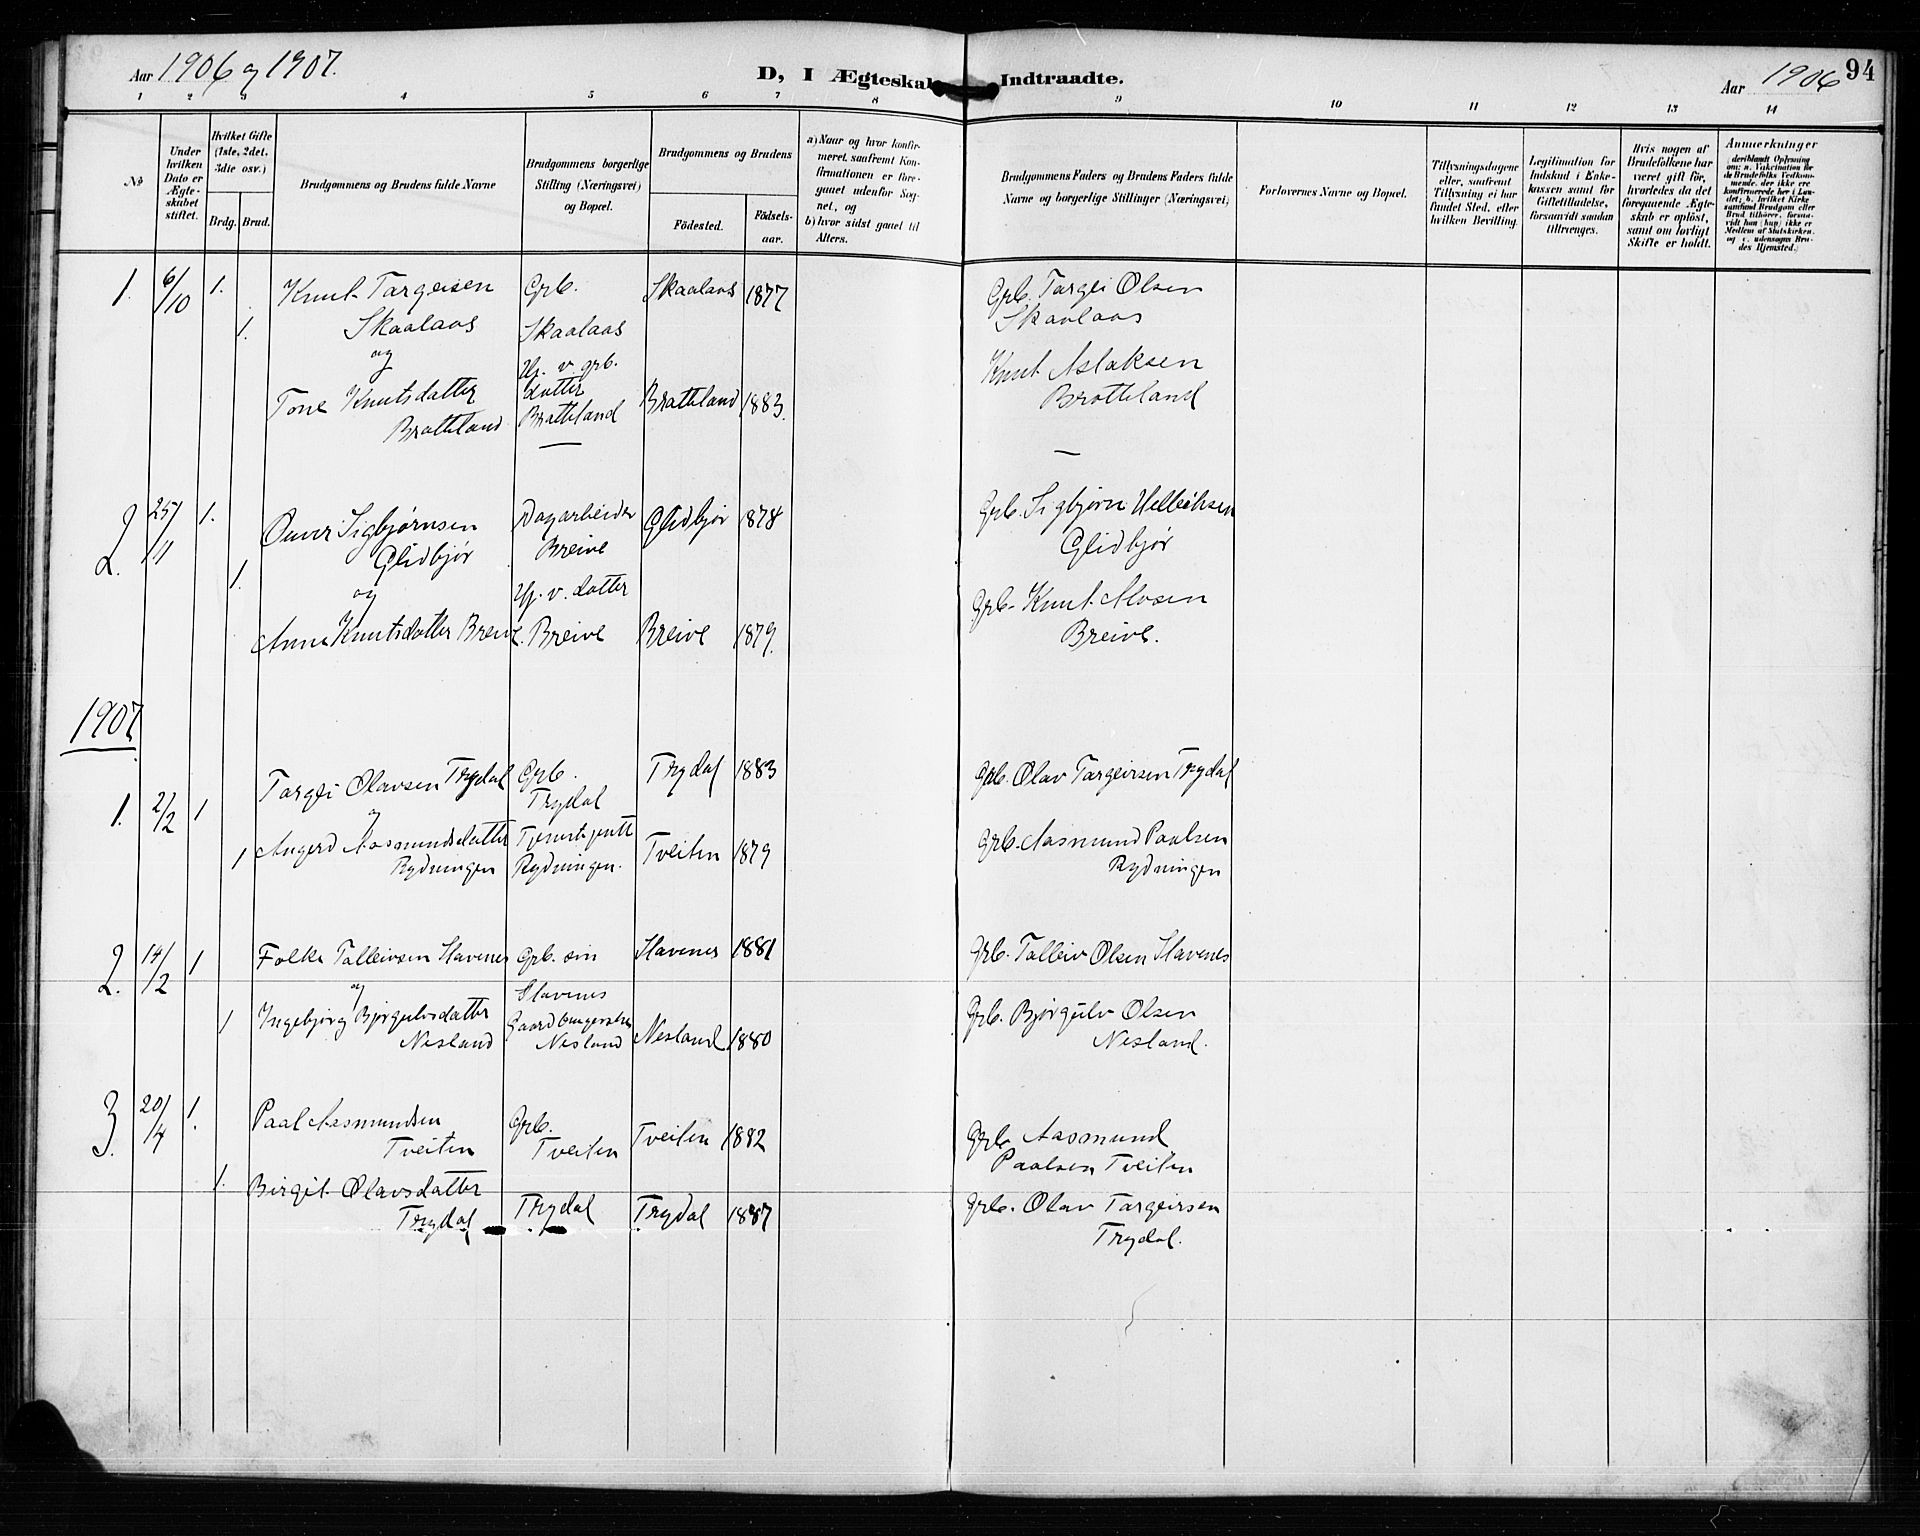 Aar 1906 og 1907.
D, I Ægteskab Indtraadte.
Aar 1906
94
1 2 3 4 5 6 7 8 9 10 11 12 13 14
No
Under hvilken Dato er Ægteskabet stiftet.
Hvilket Gifte (1ste, 2det, 3die osv.)
Brdg. Brud.
Brudgommens og Brudens fulde Navne
Brudgommens borgerlige Stilling (Næringsvei) og Bopæl.
Brudgommens og Brudens
Födested. Födsels-aar.
a) Naar og hvor konfirmeret saafremt Konfirmationen er foregaaet udenfor Sognet, og
b) hvor sidst gaaet til Alters.
Brudgommens Faders og Brudens Faders fulde Navne og borgerlige Stillinger (Næringsvei)
Forlovernes Navne og Bopæl.
Tillysningsdagene eller, saafremt Tillysning ei har fundet Sted, efter hvilken Bevilling.
Legitimation for Indskud i Enkekassen samt for Giftetilladelse, forsaavidt saadan tiltrænges.
Hvis nogen af Brudefolkene har været gift før, hvorledes da det foregaaende Ægteskab er oplöst, samt om lovligt Skifte er holdt.
Anmerkninger
(deriblandt Oplysning om: a. Vakcination for de Brudefolks Vedkommende, der ikke ere konfirmerede her i Landet; b. hvilket Kirkesamfund Brudgom eller Brud tilhører, forsaavidt han (hun) ikke er Medlem af Statskirken, og c. udensogns Brudes Hjemsted.
1. 6/10 1. Knut Targeisen Grb. Skaalaas 1877 Grb. Targei Olsen
Skaalaas Skaalaas Skaalaas
1.
og Hj. v. grb. Knut Aslaksen
Tone Knutsdatter datter Bratteland 1883. Bratteland
Bratteland Bratteland
2. 25/11 1. Ånver Sigbjørnsen Dagarbeider Glidbjør 1878 Grb. Sigbjørn
Glidbjør Breive Glidbjør
1. og Hj. v. datter Grb. Knut Alvsen
Anne Knutsdatter Breive. Breive Breive 1879. Breive.
1907
1. 2/2 1 Targei Olavsen Trydal Grb. Trydal 1883 Grb. Olav Targeirsen Trydal
og Trydal
1 Angerd Aasmundsdatter Tjenestejente Tveiten 1879 Grb. Aasmund Paalsen
Rydningen Rydningen. Rydningen
2. 14/2 1 Folke Talleivsen Stavenes Grb. søn Stavenes 1881 Grb. Talleiv Olsen Stavenes
og Stavenes
1 Ingebjørg Bjørgulvsdatter Nesland 1880 Grb. Bjørgulv Olsen
Nesland Nesland Nesland.
3. 20/4 1. Paal Aasmundsen Grb. Tveiten 1882 Grb. Aasmund
Tveiten Tveiten Paalsen Tveiten
1. Birgit Olavsdatter Grb. Olav Targeirsen
Trydal Trydal Trydal 1887 Trydal.